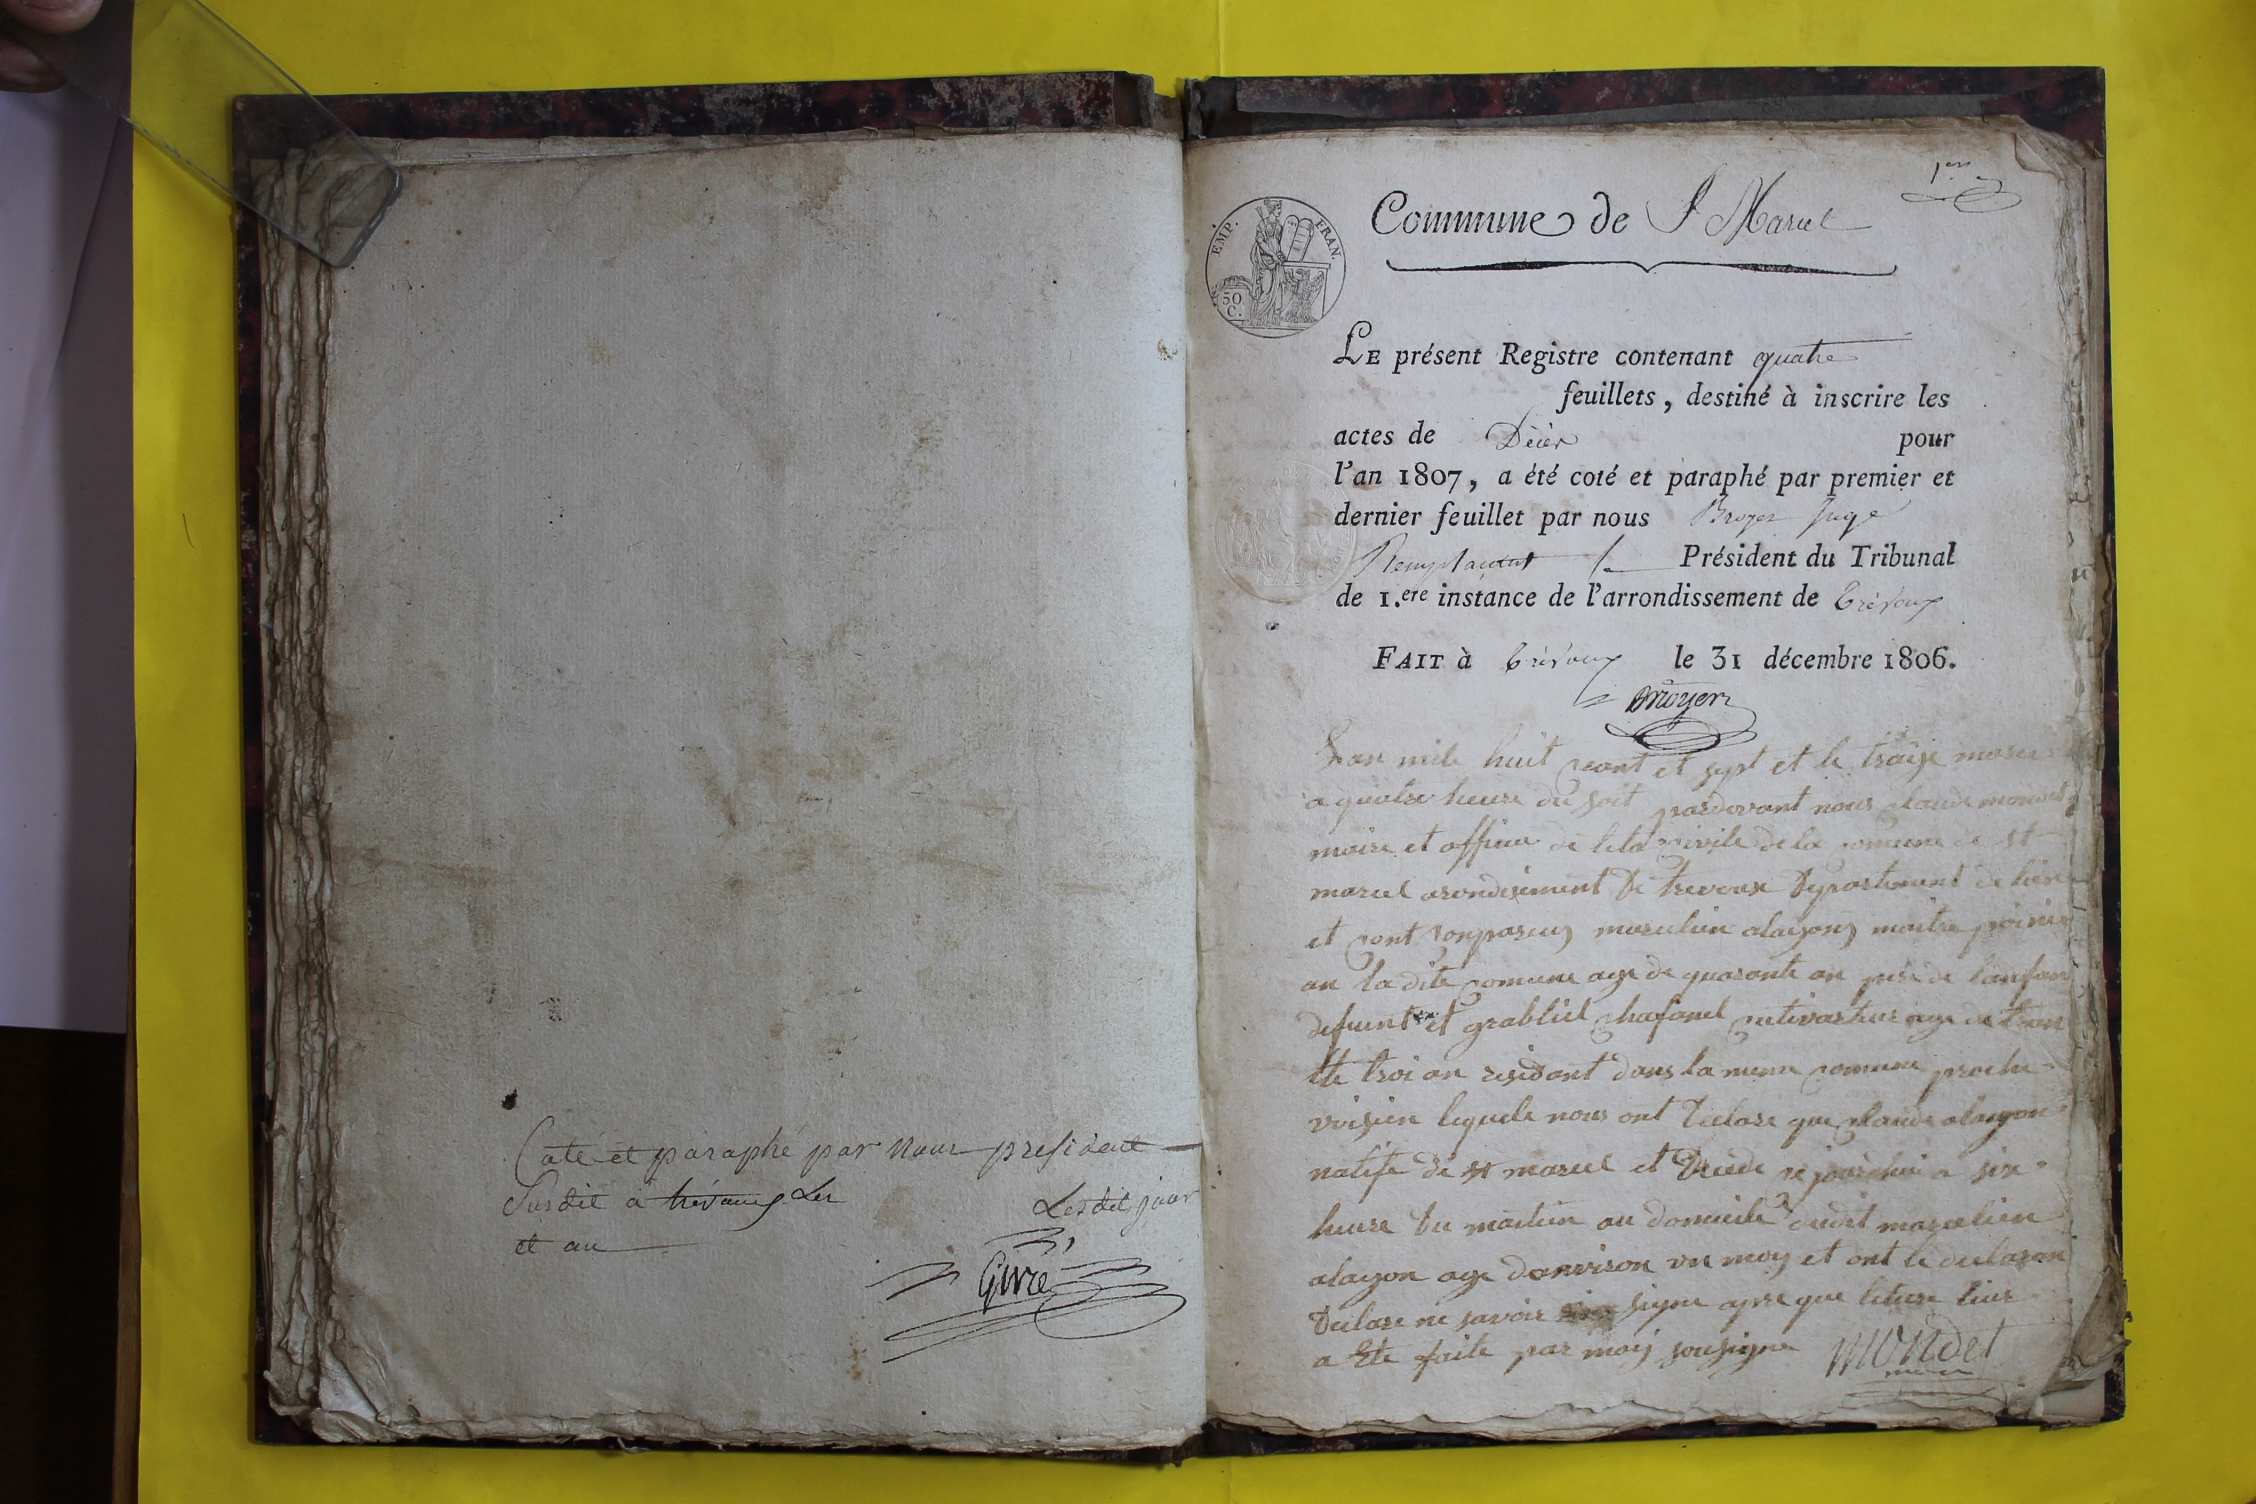 Coté et paraphé par Nous president
Susdit à trévoux Les Lesdit jour
et an
Givre
1er
Commune de St Marcel
EMP. FRAN.
50
C.
LE présent Registre contenant quatre
feuillets, destiné à inscrire les
actes de Décès pour
l'an 1807, a été coté et paraphé par premier et
dernier feuillet par nous Broyer Juge
Remplaçant le Président du Tribunal
de 1.ere instance de l'arrondissement de Trévoux
FAIT à Trévoux le 31 décembre 1806.
Broyer
Lan mile huit cant et sept et le traize
a quatre heure du soit pardevant nous claude mondet
maire et officie de leta civile de la comune de st
marcel arondisiment De trevoux Departement de lien
et cont conparus marcelien alacon maitre
an la dite comune age de quarante an pere de lanfan
defunt et grabliel chafanel cultivateur age de tran
tte troi an residant dans la meme comune proche
voisien lequele nous ont Declare que claude alacon
natife de st marcel et Decede ce jourdhui a six
heure Du maitin au domicile dudit marcelien
alacon age danvison un moy et ont le declaran
Declare ne savoir signe apre que leture leur
a Ete faite par moy sousigne mondet
maire